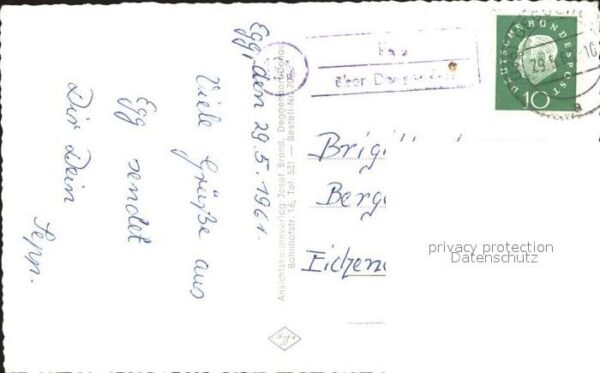 Egg, den 29.5.1961.
Viele Grüße aus
Egg sendet
Dir Dein
Sepp.
Ansichtskartenverlag Josef Brand, Deggendorf/Donau
Bahnhofstr. 16, Tel. 531 — Bestell-Nr.
Egg
über
DEUTSCHE BUNDESPOST
10
29.5.
Berg
Eichen
privacy protection
Datenschutz